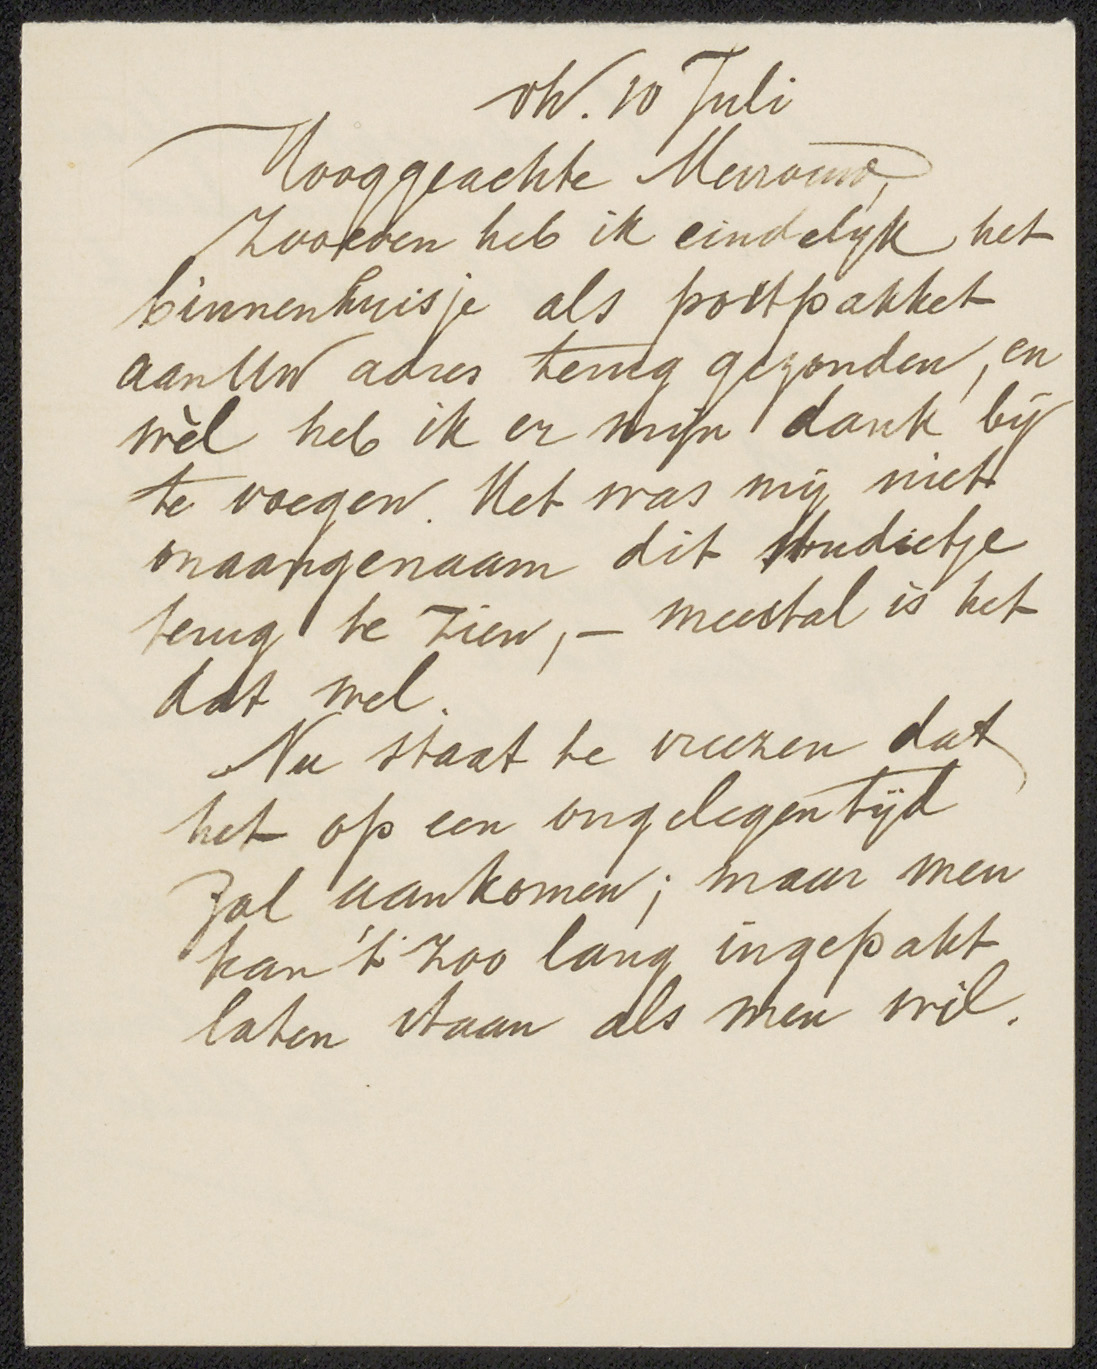 10 Juli
Hooggeachte Mevrouw,
Zooeven heb ik eindelijk het
binnenhuisje als postpakket
aan Uw adres terug gezonden, en
wèl heb ik er mijn dank bij
te voegen. Het was mij niet
onaangenaam dit studietje
terug te zien, — meestal is het
dat wel.
Nu staat te vreezen dat
het op een ongelegen tijd
zal aankomen; maar men
kan 't zoo lang ingepakt
laten staan als men wil.